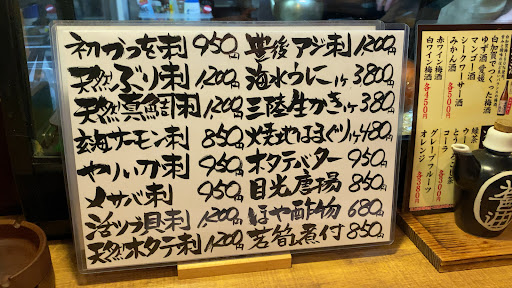 初かつを刺 950円
天然ぶり刺 1,200円
天然真鯛刺 1,200円
玄海サーモン刺 850円
やりいか刺 950円
〆サバ刺 950円
活つぶ貝刺 1,200円
天然ホタテ刺 1,200円
豊後アジ刺 1,200円
海水ウニ 1ケ 3,800円
三陸生かき 1ケ 380円
焼地はまぐり 1ケ 480円
ホタテバター 950円
目光唐揚 850円
ほや酢物 680円
若筍煮付 850円
白加賀でつくった梅酒
ゆず酒 愛媛
マンゴー酒
シークワーサー酒
みかん酒
赤ワイン梅酒
白ワイン梅酒
各450円
緑茶
コーラ
グレープフルーツ
オレンジ
各300円
各380円
醤油